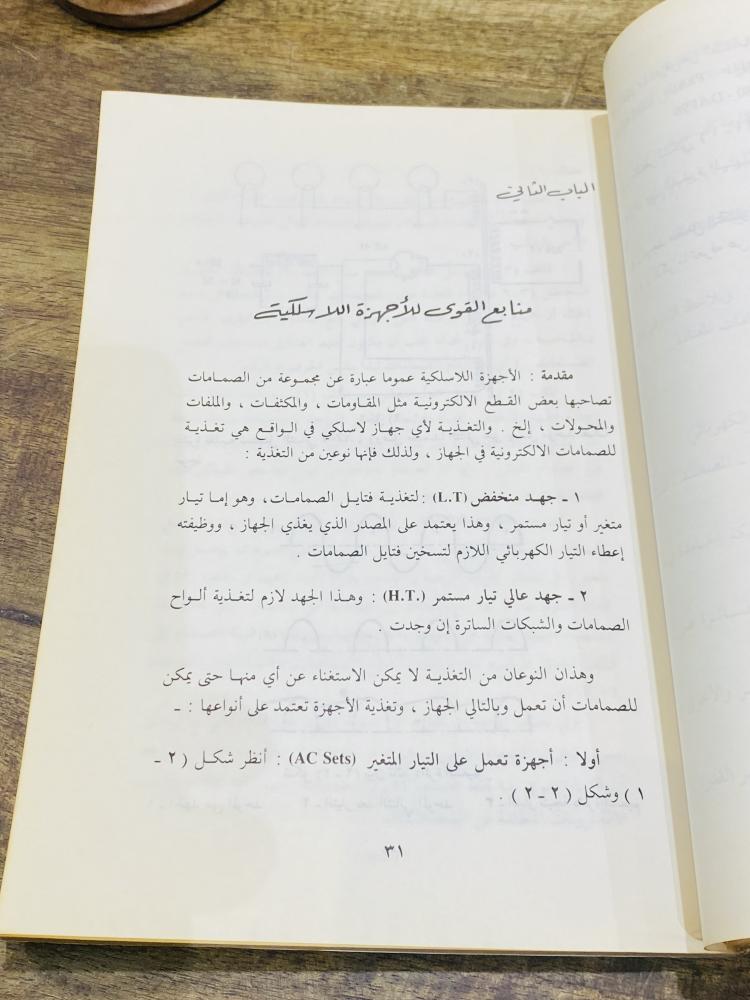 الباب الثاني
منابع القوى للأجهزة اللاسلكية
مقدمة : الأجهزة اللاسلكية عموما عبارة عن مجموعة من الصمامات
تصاحبها بعض القطع الالكترونية مثل المقاومات ، والمكثفات ، والملفات
والمحولات ، إلخ . والتغذية لأي جهاز لاسلكي في الواقع هي تغذية
للصمامات الالكترونية في الجهاز ، ولذلك فإنها نوعين من التغذية :
١ ـ جهد منخفض (L.T) : لتغذية فتايل الصمامات، وهو إما تيار
متغير أو تيار مستمر ، وهذا يعتمد على المصدر الذي يغذي الجهاز ، ووظيفته
إعطاء التيار الكهربائي اللازم لتسخين فتايل الصمامات .
٢ ـ جهد عالي تيار مستمر (H.T.) : وهذا الجهد لازم لتغذية ألواح
الصمامات والشبكات الساترة إن وجدت .
وهذان النوعان من التغذية لا يمكن الاستغناء عن أي منها حتى يمكن
للصمامات أن تعمل وبالتالي الجهاز ، وتغذية الأجهزة تعتمد على أنواعها : ـ
أولا : أجهزة تعمل على التيار المتغير (AC Sets) : أنظر شكل ( ٢ ـ
١ ) وشكل ( ٢ ـ ٢ ) .
٣١